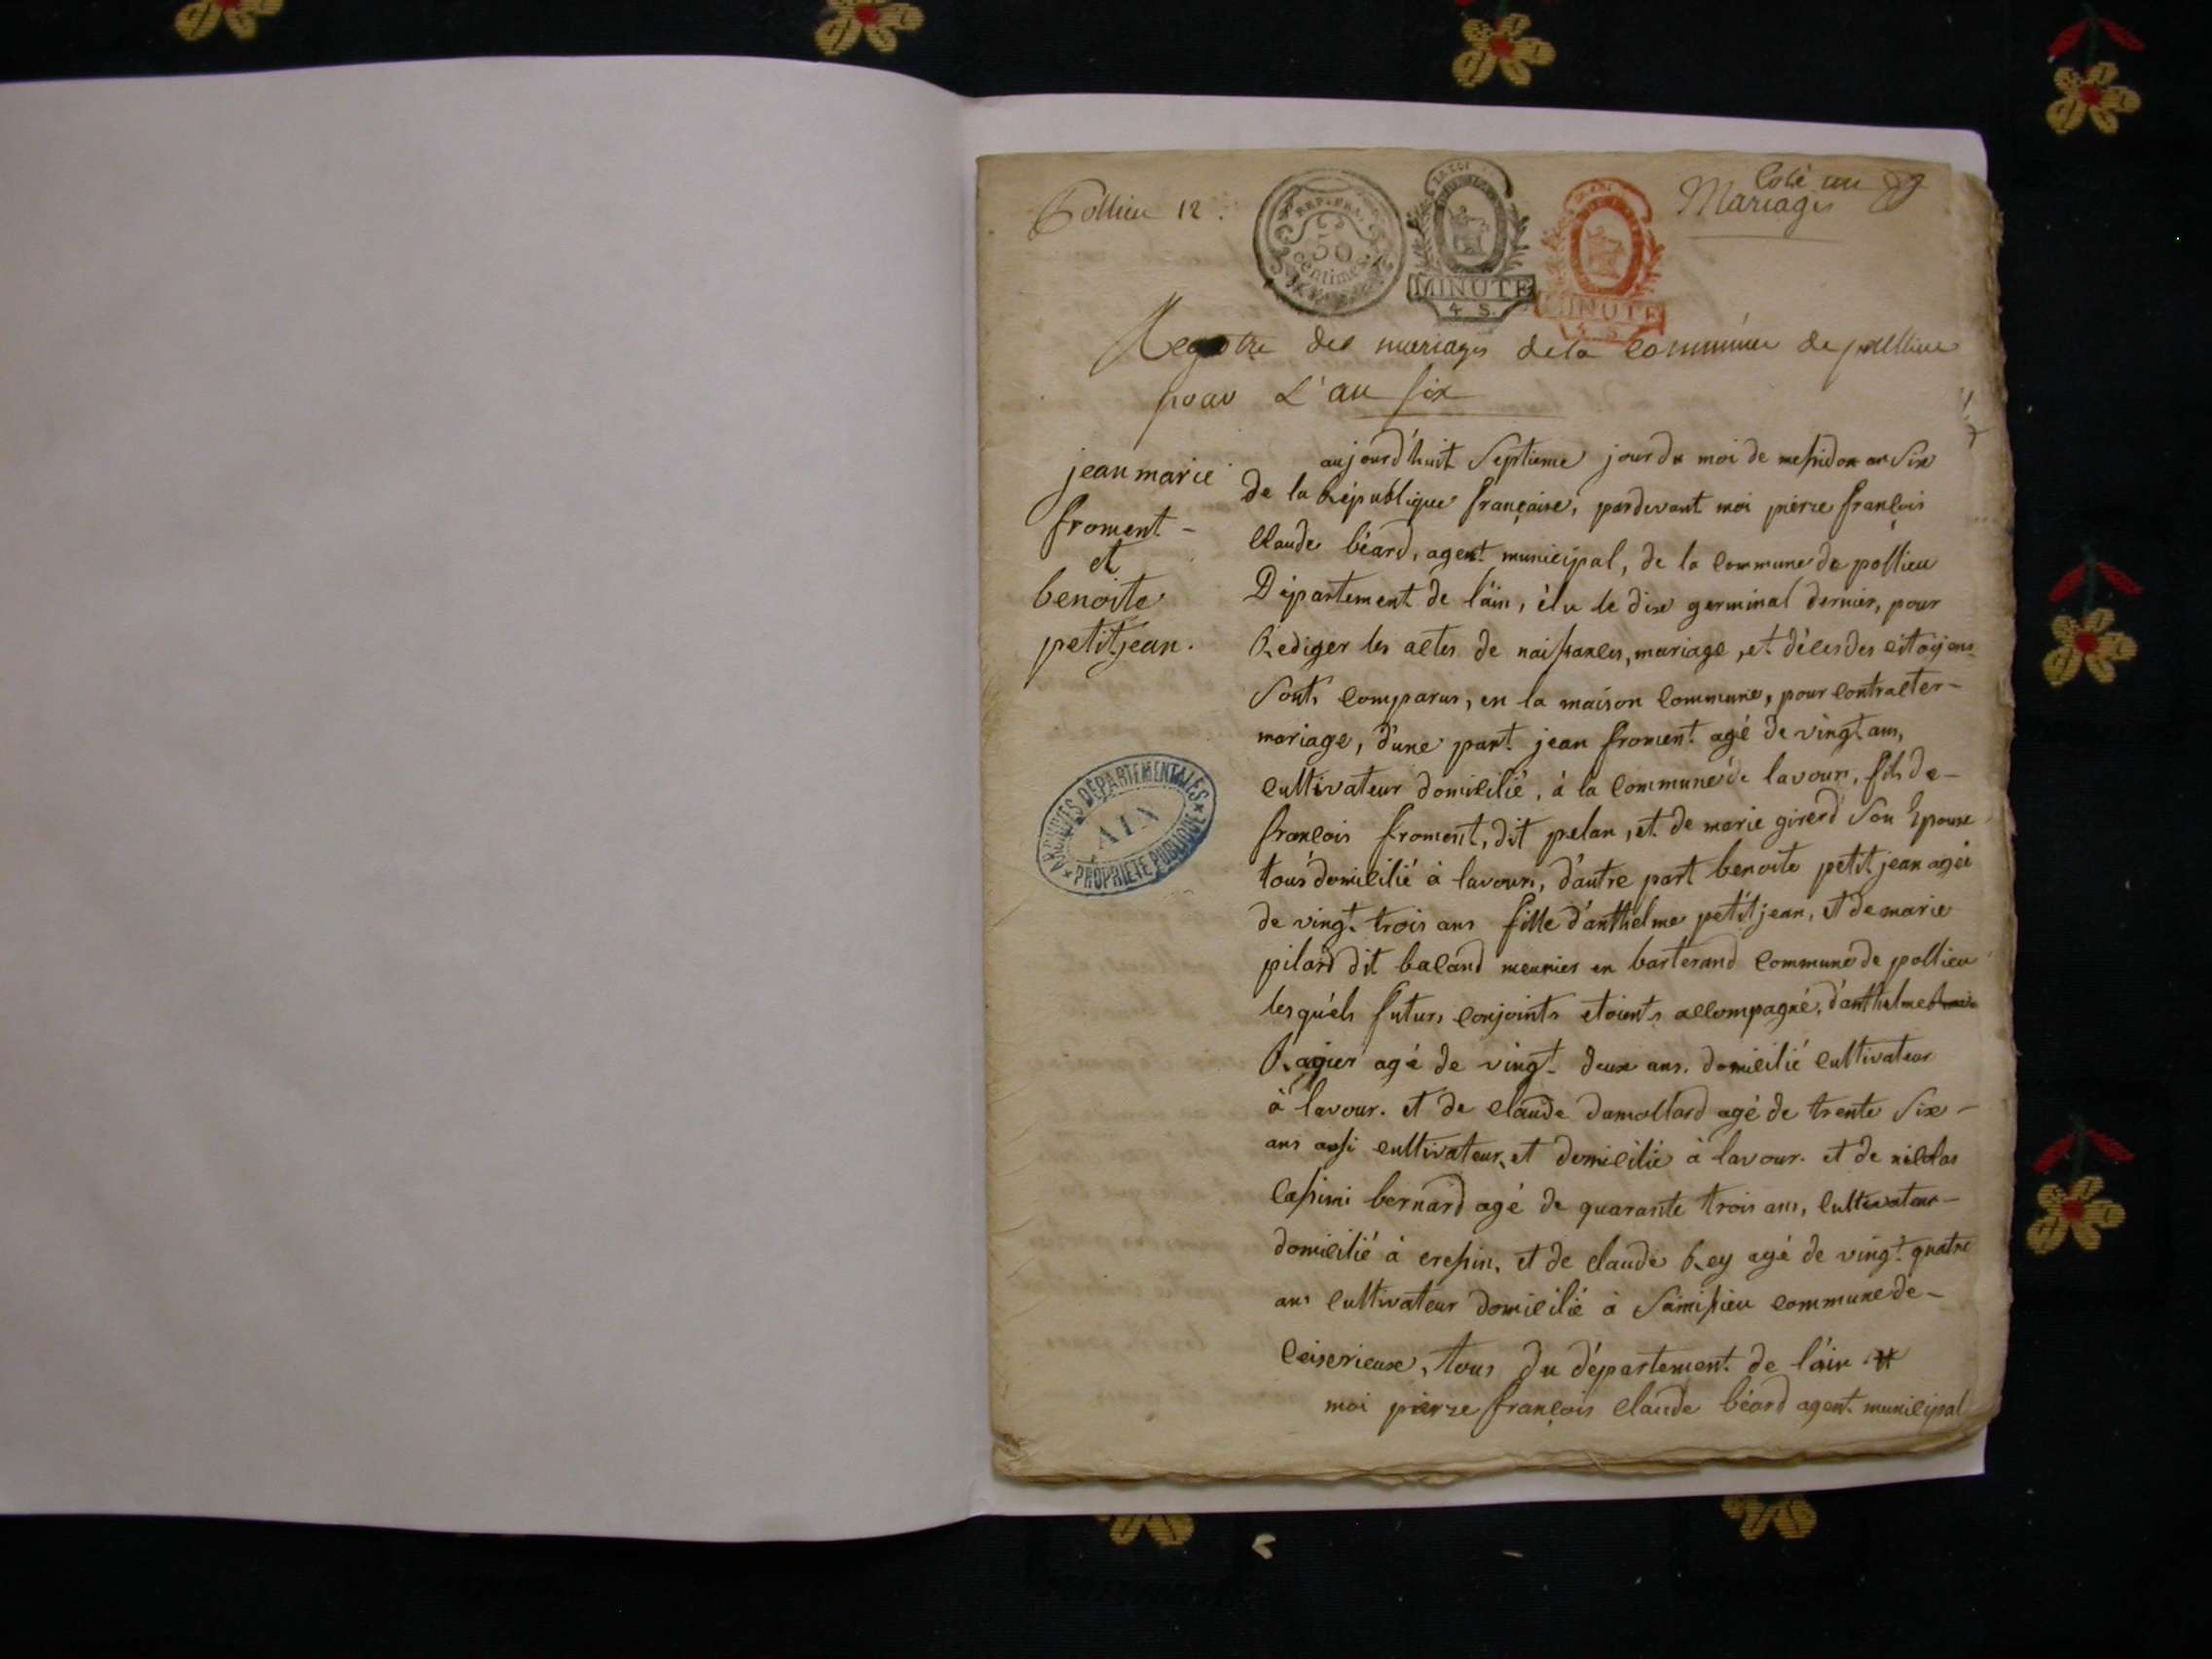 Pollieu 12.
REP. FRA.
50
centimes
LA LOI
MINUTE
4 S.
MINUTE
4 S.
Coté un
Mariages
Registre des mariages de la commune de pollieu
pour L'an six
jean marie
froment -
et
benoite
petitjean.
aujourd'huit septieme jour du moi de messidor an six
de la République française, pardevant moi pierre françois
claude béard, agent municipal, de la commune de pollieu
Département de l'ain, élu le dix germinal dernier, pour
Rediger les actes de naissances, mariage, et décès des citoyens
sonts comparus, en la maison commune, pour contracter -
mariage, d'une part jean froment agé de vingt ans,
cultivateur domicilié, à la commune de lavour, fils de -
françois froment, dit pelan, et de marie girerd son Epouse
tous domicilié à lavours, d'autre part benoite petit jean agée
de vingt trois ans fille d'anthelme petitjean, et de marie
pilard dit baland meunier en barterand commune de pollieu
les quéls futurs conjoints etoients accompagné, d'anthelme
Ragier agé de vingt deux ans. domicilié cultivateur
à lavour. et de claude dumollard agé de trente six -
ans aussi cultivateur, et domicilié à lavour. et de nicolas
cassimi bernard agé de quarante trois ans, cultivateur -
domicilié à cressin, et de claude Rey agé de vingt quatre
ans cultivateur domicilié à Saimissieu commune de -
ceiserieux, tous du département de l'ain
moi pierre françois claude béard agent municipal
ARCHIVES DEPARTEMENTALES
AIN
PROPRIETE PUBLIQUE